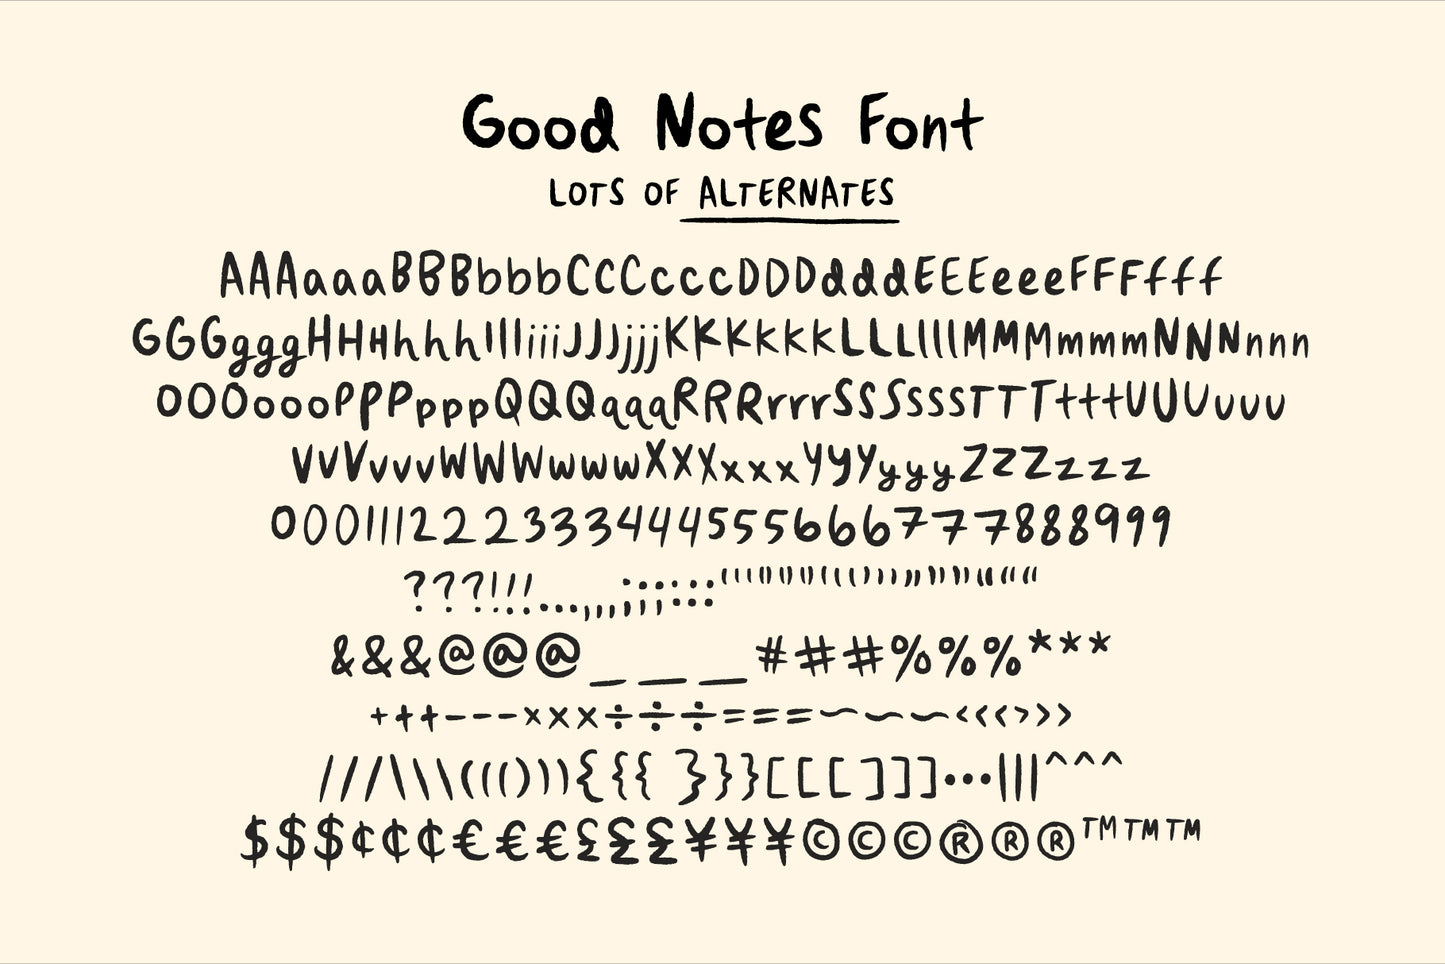 Good Notes Font
LOTS OF ALTERNATES
AAAaaaBBBbbbCCCcccDDDdddEEEeeeFFFfff
GGGgggHHHhhhIIIiiiJJJjjjKKKkkkLLLlllMMMmmmNNNnnn
OOOoooPPPpppQQQqqqRRRrrrSSSsssTTTtttUUUuuu
VVVvvvWWWwwwXXXxxxYYYyyyZZZzzz
000111222333444555666777888999
???!!!...,,,;;;:::'''"""‘‘‘’’’”””“““
&&&@@@___###%%%***
+++---×××÷÷÷===~~~<<<>>>
///\\\((())){{{}}}[[[]]]…|||^^^
$$$¢¢¢€€€£££¥¥¥©©©®®®™™™